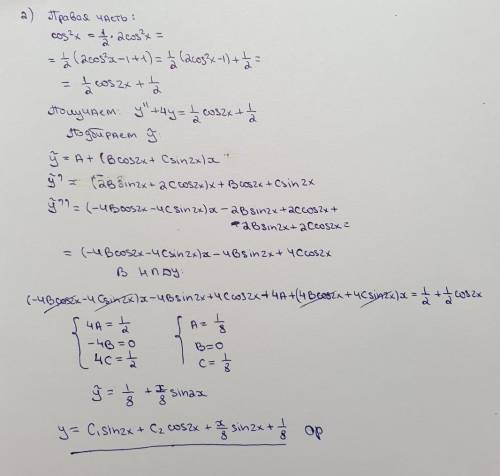 2) Правая часть:
cos²x = 1/2 · 2cos²x =
= 1/2 (2cos²x-1+1) = 1/2 (2cos²x-1) + 1/2 =
= 1/2 cos2x + 1/2
Получаем: y'' + 4y = 1/2 cos2x + 1/2
Подбираем ỹ:
ỹ = A + (Bcos2x + Csin2x)x
ỹ' = (-2Bsin2x + 2Ccos2x)x + Bcos2x + Csin2x
ỹ'' = (-4Bcos2x - 4Csin2x)x - 2Bsin2x + 2Ccos2x +
-2Bsin2x + 2Ccos2x =
= (-4Bcos2x - 4Csin2x)x - 4Bsin2x + 4Ccos2x
В НЛДУ:
(-4Bcos2x - 4Csin2x)x - 4Bsin2x + 4Ccos2x + 4A + (4Bcos2x + 4Csin2x)x = 1/2 + 1/2 cos2x
{ 4A = 1/2 { A = 1/8
-4B = 0 B = 0
4C = 1/2 C = 1/8
ỹ = 1/8 + x/8 sin2x
y = C₁sin2x + C₂cos2x + x/8 sin2x + 1/8 ОР